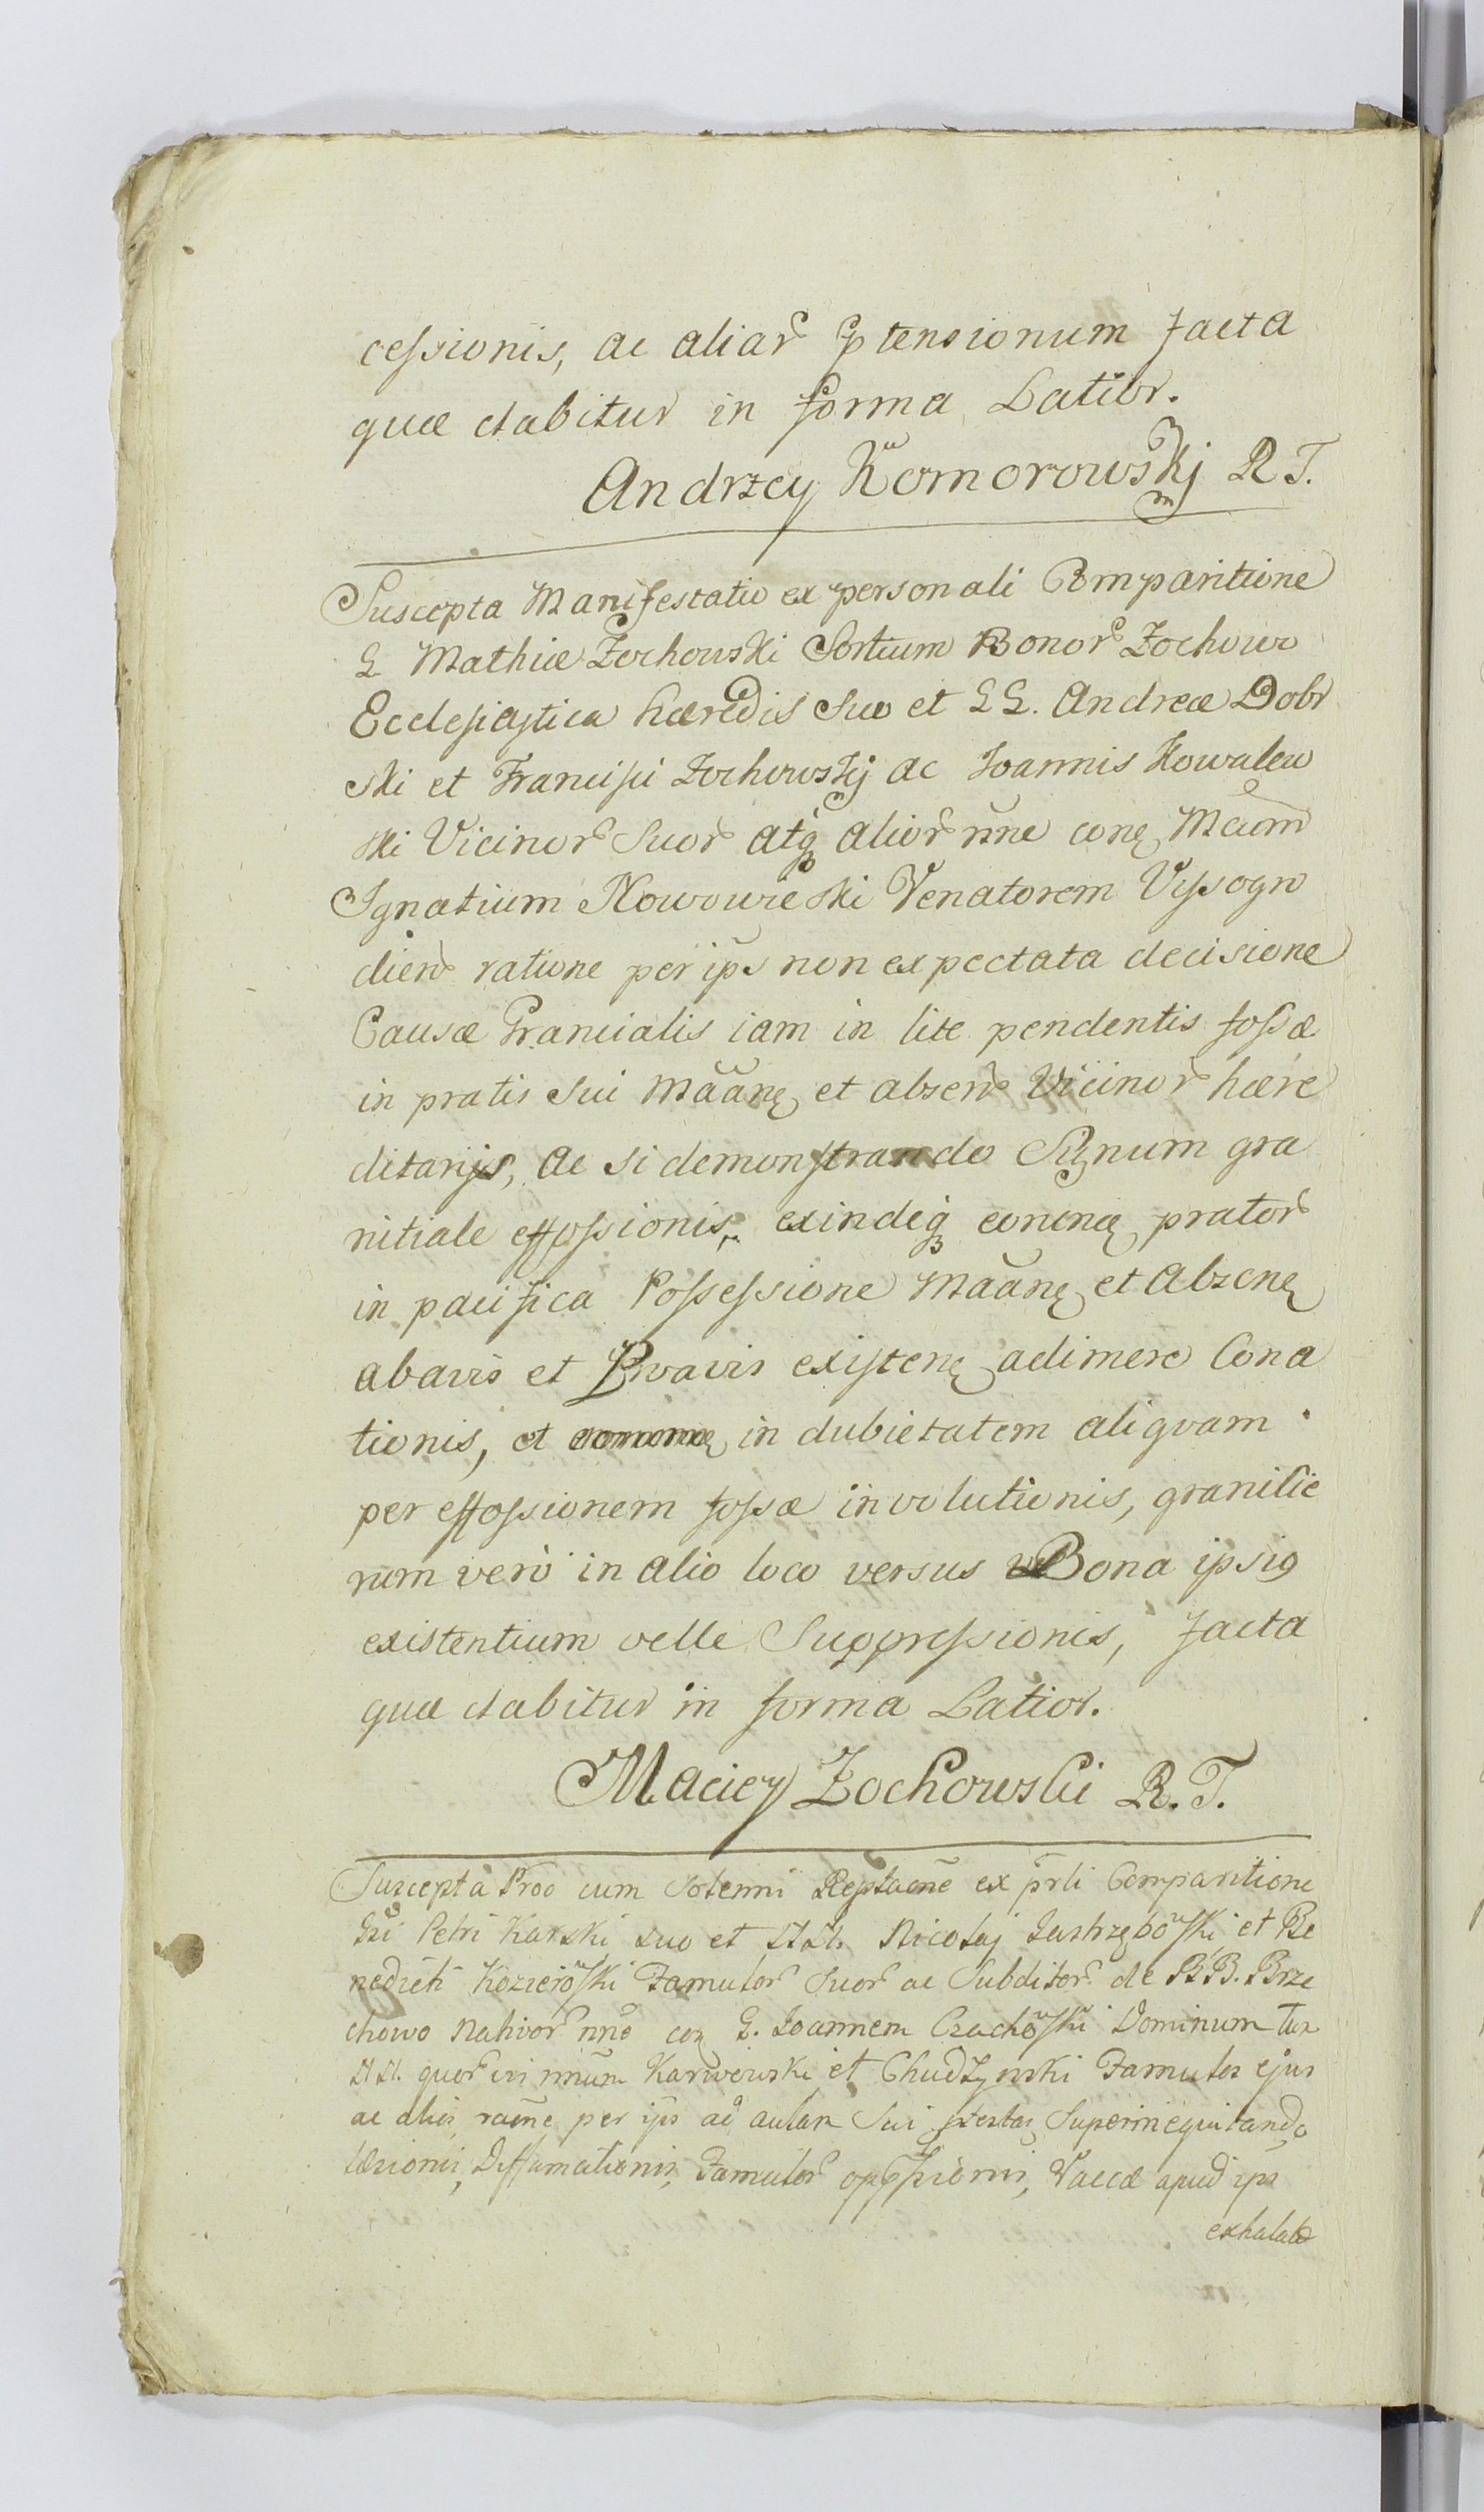 cessionis, ac aliar ptensionum facta
quæ dabitur in forma Latior.
Andrzey Komorowskj R T.
Suscepta Manifestatio ex personali Comparitione
G Mathiæ Zochowski Sortium Bonor Zochowo
Ecclesiastica hæredis Suo et G G. Andreæ Dobr
ski et Francisci Zochowskj ac Joannis Kowalew
ski Vicinor Suor atq alior nne conę Mcum
Ignatium Nowowieski Venatorem Vyssogro
dien ratione per ips non expectata decisione
Causæ Granicialis iam in lite pendentis fossæ
in pratis Sui Māānę et absen Vicinor hære
ditarijs, ac si demonstrando Signum gra
nitiale effossionis, exindeq prator
in pacifica Possessione Māānę et Abzenę
abavis et Proavis existenę adimere Cona
tionis, et in dubietatem aliqvam
per effossionem fossæ involutionis, granicie
rum verò in alio loco versus Bona ipsi9
existentium velle Suppressionis, facta
quæ dabitur in forma Latior.
Maciey Zochowski R. T.
Suscepta Proo cum Solenni ex prli Comparitione
Gsi Petri Karski suo et Nicolaj Jastrzęboski et Be
nedicti Kozieroski Famulor Suor ac Subditor de B.B. Brze
chowo Nativor nne coz G. Joannem Czachoski Dominum tum
quor Karwowski et Chudzynski Famulos ejus
ac alios raõne per ips ad aulam Sui Superinequitando
læsionis, Diffamationis, Famulor opp̃ssionis, Vaccæ apud ips
exhalatæ